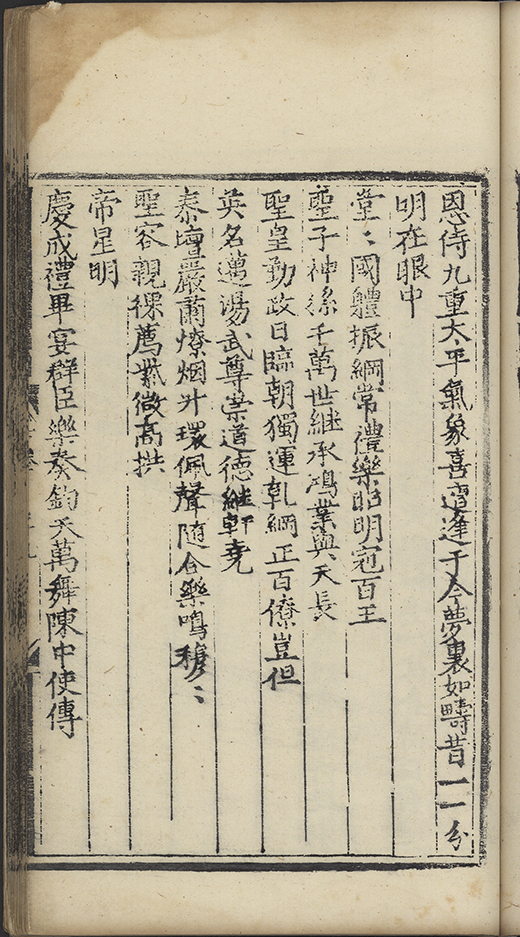 恩侍九重太平氣象喜遭逢于今夢裏如疇昔一一分
明在眼中
堂〻國體振綱常禮樂昭明冠百王
聖子神孫千萬世継承鴻業與天長
聖皇勤政日臨朝獨運乹綱正百僚豈但
英名邁湯武尊崇道德継軒堯
泰壇嚴肅燎烟升環佩聲随合樂鳴穆〻
聖容親祼薦紫微高拱
帝星明
慶成禮畢宴群臣樂奏鈞天萬舞陳中使傳